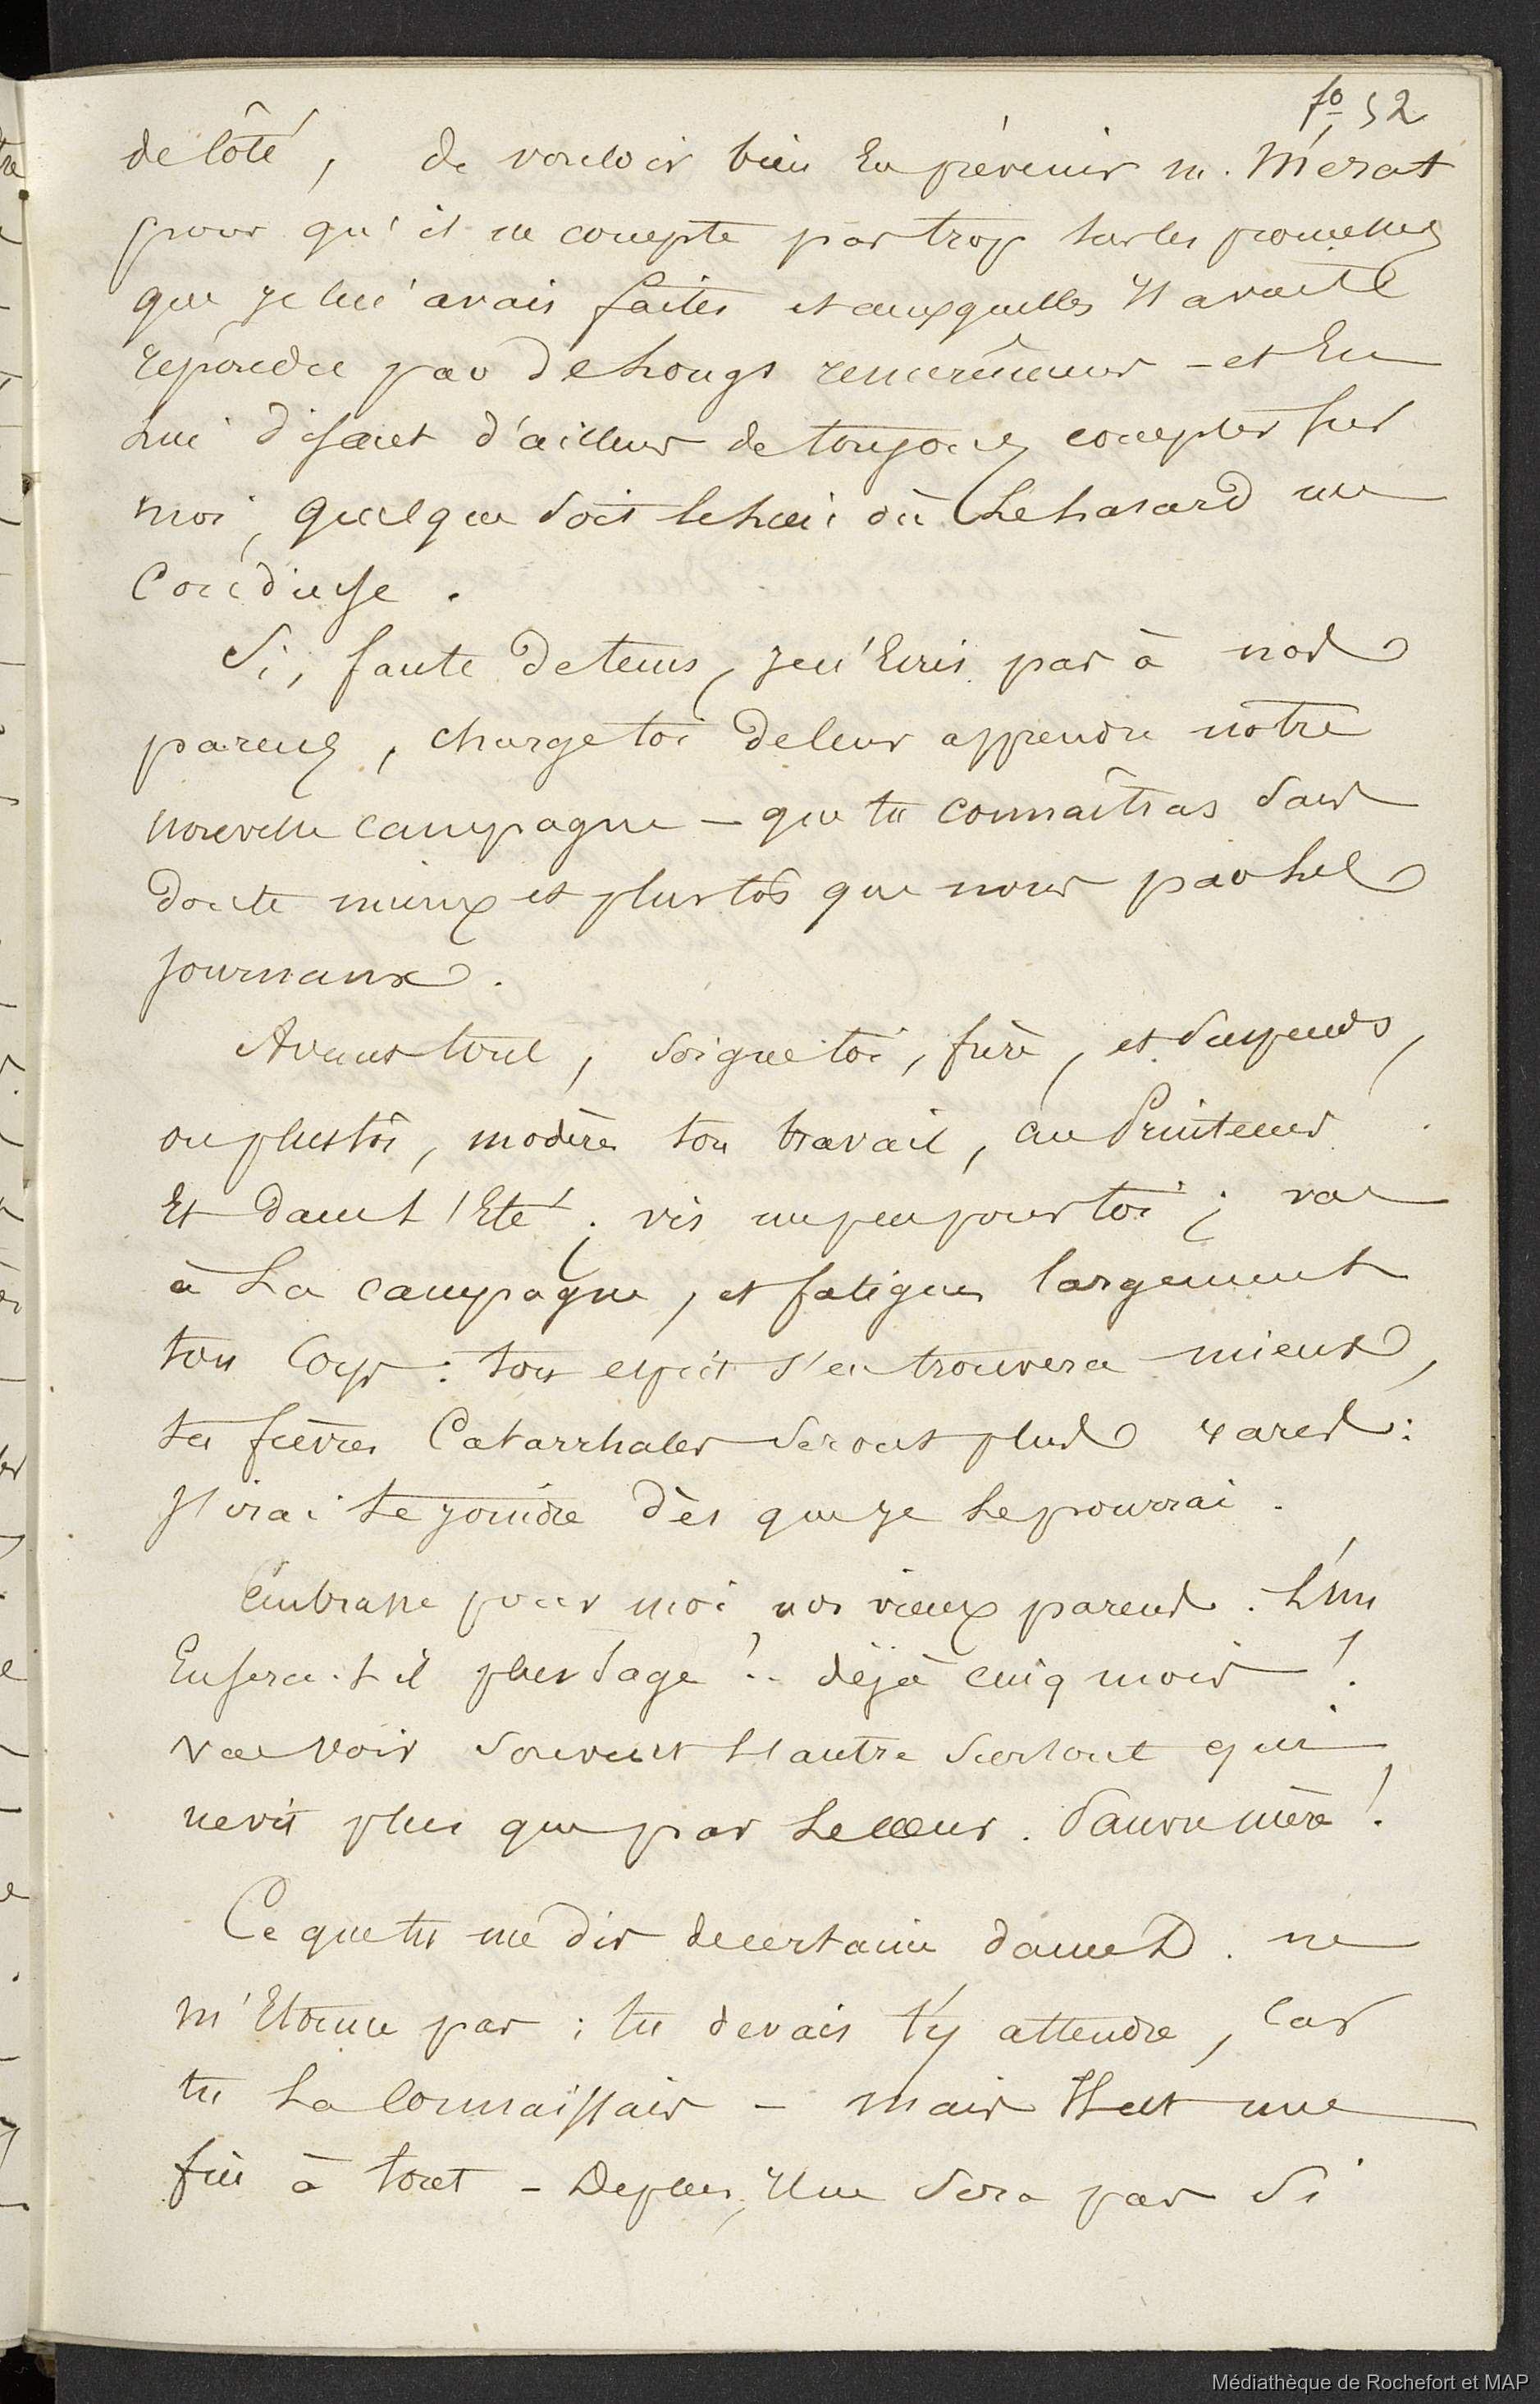 fo 52
de côté, de vouloir bien en prévenir m. Mérat
pour qu'il ne compte pas trop sur les promesses
que je lui avais faites et auxquelles il avait
répondu par de longs remerciemens - et en
lui disant d'ailleurs de toujours compter sur
moi, quelque soit le lieu où le hasard me
conduisse.
Si, faute de tems, je n'écris pas à nos
parens, charge toi de leur apprendre notre
nouvelle campagne - que tu connaîtras sans
doute mieux et plustôt que nous par les
journaux.
Avant tout, soigne toi, frère, et suspends,
ou plustôt, modère ton travail, au Printems
et dans l'Eté; vis un peu pour toi; va
à la campagne, et fatigues largement
ton corps : ton esprit s'en trouvera mieux,
tes fièvres catarrhales seront plus rares :
j'irai te joindre dès que je le pourrai.
Embrasse pour moi nos vieux parens. L'un
en sera-t-il plus sage !.. déjà cinq mois !.
va voir souvent l'autre surtout qui
ne vit plus que par le cœur. Pauvre mère !.
Ce que tu me dis de certaine dame D. ne
m'étonne pas : tu devais t'y attendre, car
tu la connaissais - mais il est une
fin à tout - De plus, il ne sera pas si
Médiathèque de Rochefort et MAP